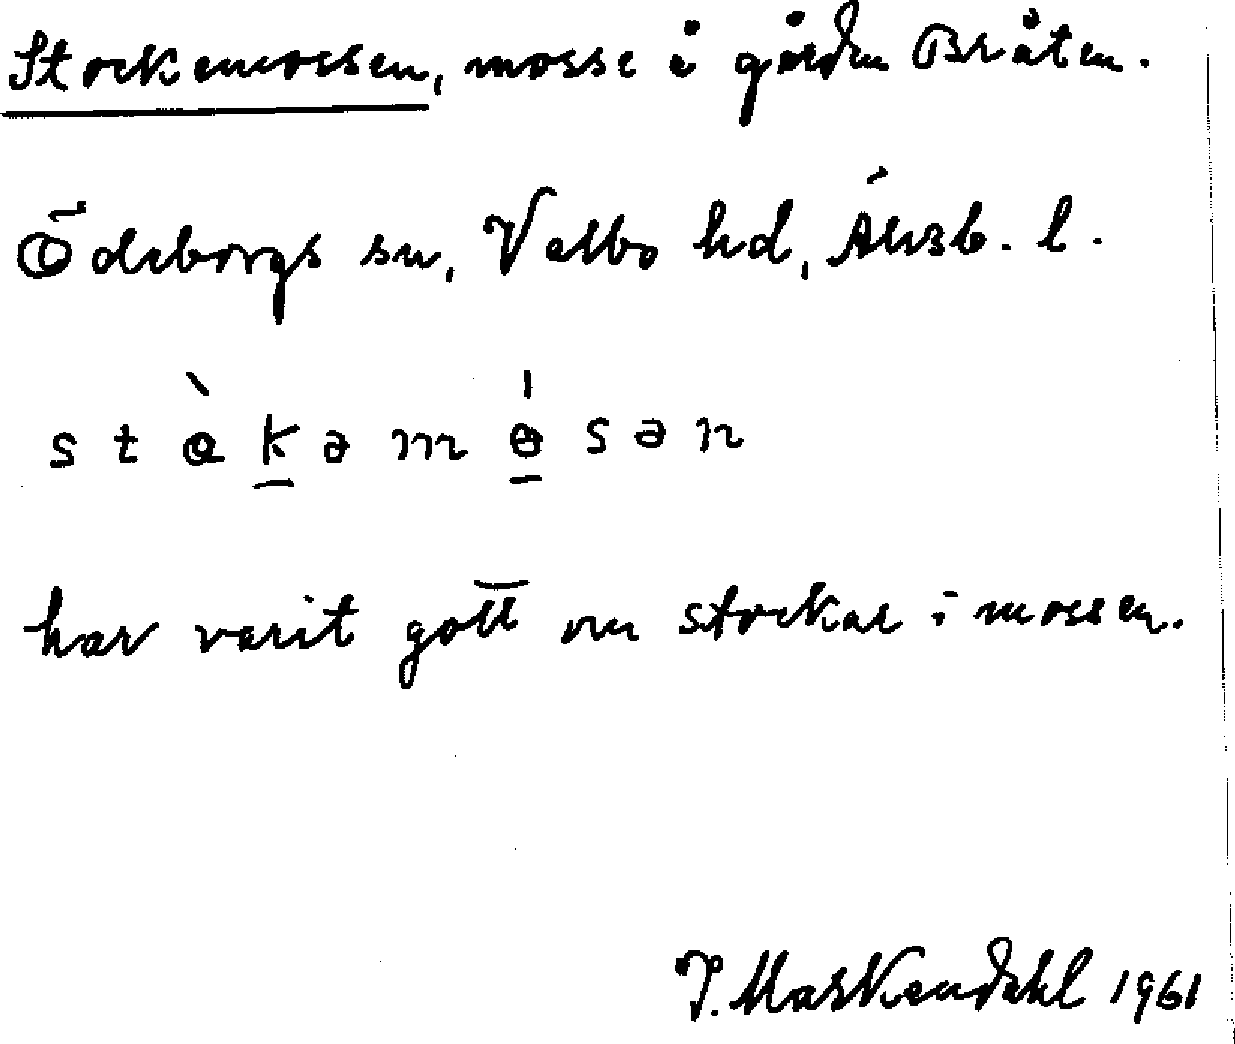 Stockemossen, mosse å gården Bråten.
Ödeborgs sn, Valbo hd, Älvsb. l.
stɵ̀kəmɵ́sən
har varit gott om stockar i mossen.
J. Maskendahl 1961